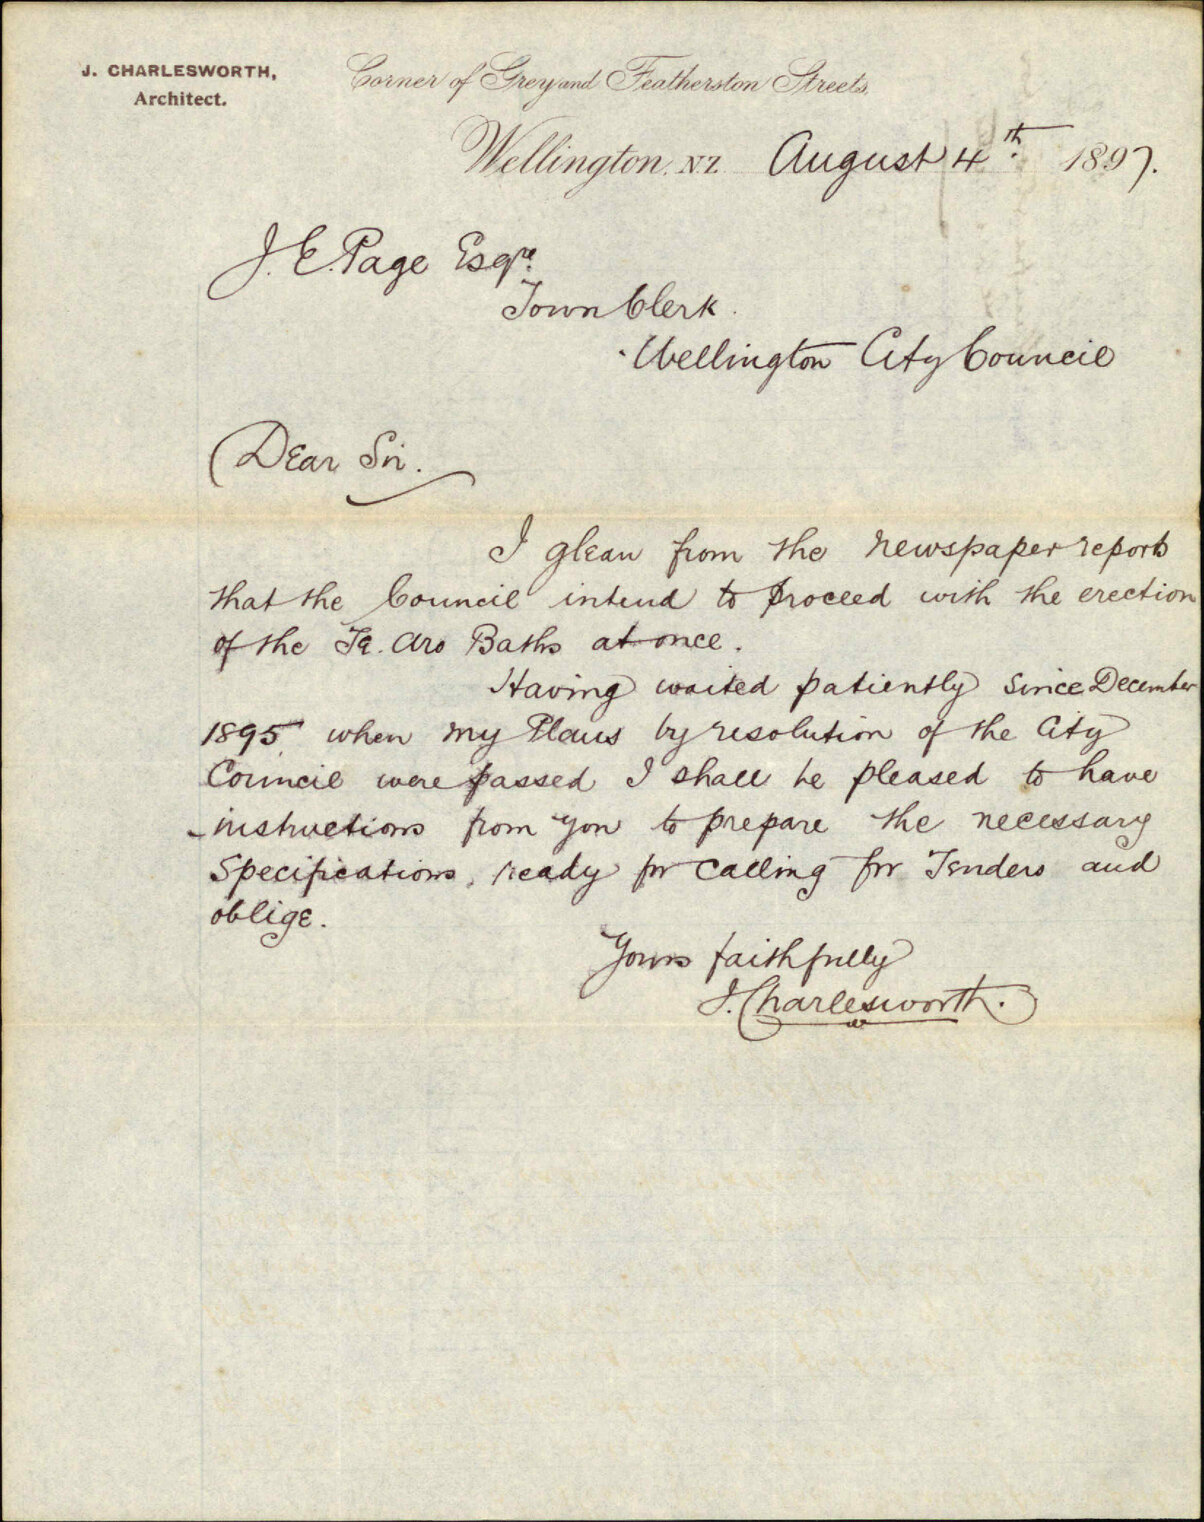 J. CHARLESWORTH,
Architect.
Corner of Grey and Featherston Streets,
Wellington, NZ August 4th. 1897.
J. E. Page Esqre.
Town Clerk.
Wellington City Council
Dear Sir.
I glean from the newspaper reports
that the Council intend to proceed with the erection
of the Te. Aro Baths at once.
Having waited patiently since December
1895, when my Plans by resolution of the City
Council were passed I shall be pleased to have
instructions from you to prepare the necessary
Specifications, ready for calling for Tenders and
oblige.
Yours faithfully
J. Charlesworth.